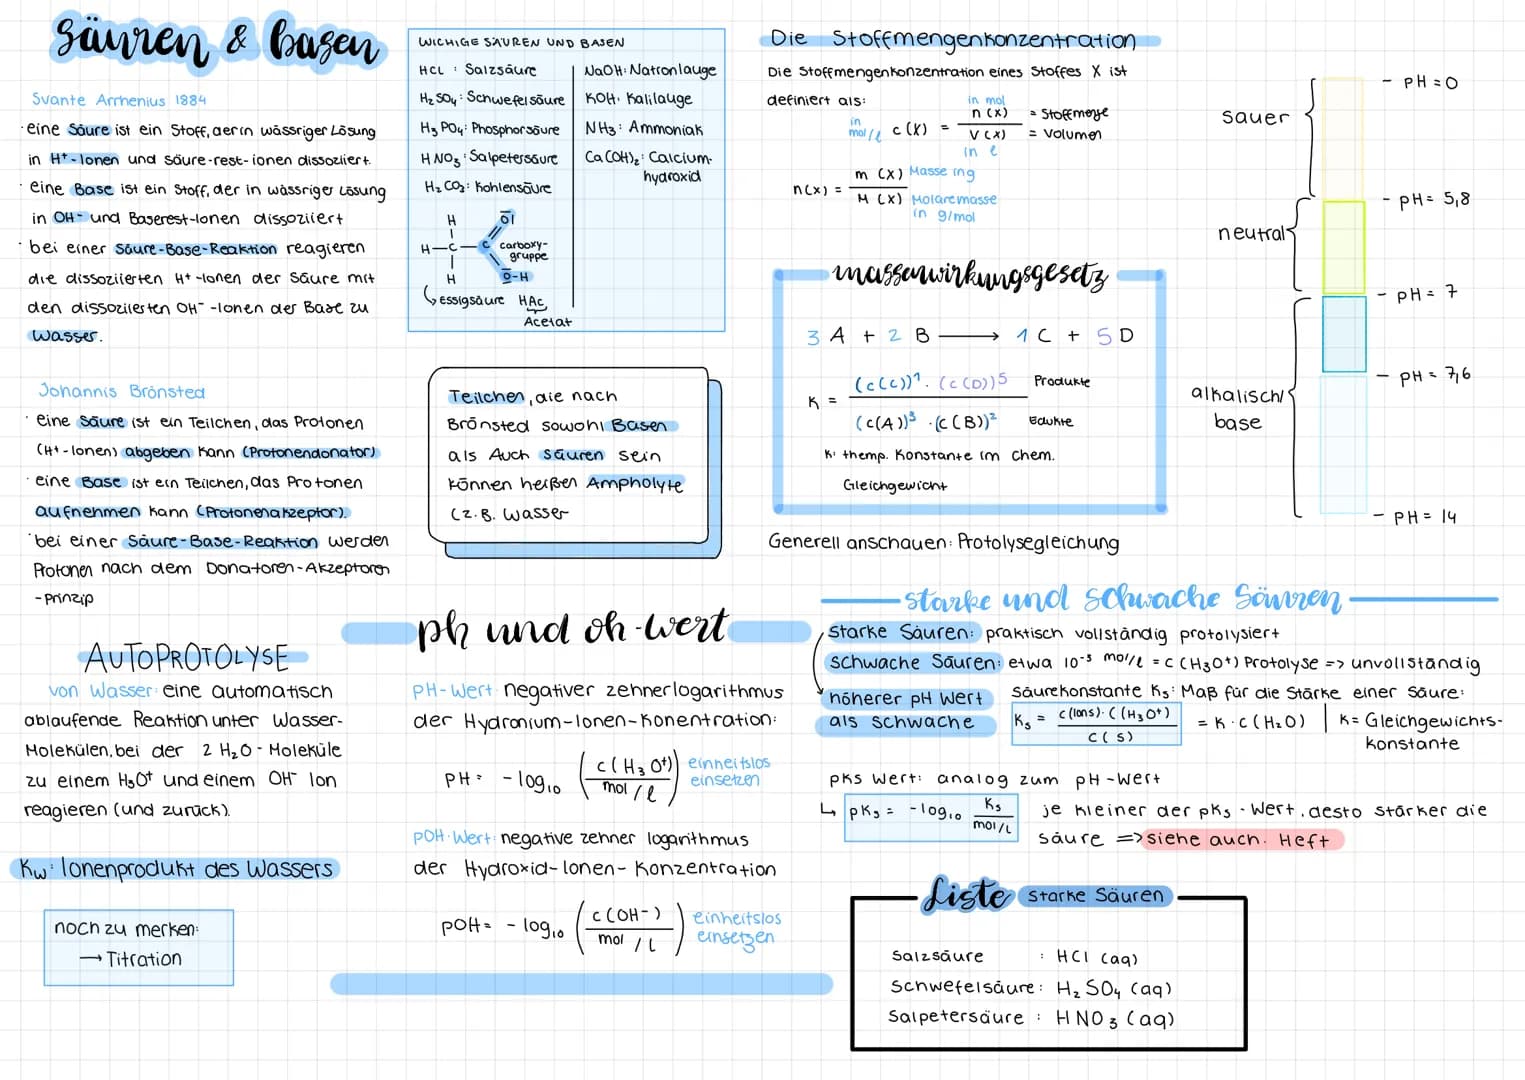 Säuren & Basen
Svante Arrhenius 1884
· eine Säure ist ein Stoff, der in wässriger Lösung
in H⁺-Ionen und Säure-rest-ionen dissoziiert.
· eine Base ist ein Stoff, der in wässriger Lösung
in OH⁻ und Baserest-Ionen dissoziiert
· bei einer Säure-Base-Reaktion reagieren
die dissoziierten H⁺-Ionen der Säure mit
den dissoziierten OH⁻-Ionen der Base zu
Wasser.
Johannis Brönsted
· eine Säure ist ein Teilchen, das Protonen
(H⁺-Ionen) abgeben kann (Protonendonator)
· eine Base ist ein Teilchen, das Protonen
aufnehmen kann (Protonenakzeptor).
· bei einer Säure-Base-Reaktion werden
Protonen nach dem Donatoren-Akzeptoren
-Prinzip
AUTOPROTOLYSE
von Wasser: eine automatisch
ablaufende Reaktion unter Wasser-
Molekülen, bei der 2 H₂O-Moleküle
zu einem H₃O⁺ und einem OH⁻ Ion
reagieren (und zurück).
Kw: Ionenprodukt des Wassers
noch zu merken:
→ Titration
WICHIGE SÄUREN UND BASEN
HCL : Salzsäure
H₂SO₄: Schwefelsäure
H₃PO₄: Phosphorsäure
HNO₃: Salpetersäure
H₂CO₃: Kohlensäure
NaOH: Natronlauge
KOH: Kalilauge
NH₃: Ammoniak
Ca(OH)₂: Calcium-
hydroxid
H O
H—C—C carboxy-
gruppe
H O-H
essigsäure HAc
Acetat
Teilchen, die nach
Brönsted sowohl Basen
als Auch säuren sein
können heißen Ampholyte
(z.B. Wasser
ph und oh-wert
pH-Wert: negativer zehnerlogarithmus
der Hydronium-Ionen-Konentration:
pH = -log₁₀ (c(H₃O⁺) / mol/l) einheitslos
einsetzen
pOH-Wert: negative zehner logarithmus
der Hydroxid-Ionen-Konzentration
pOH = -log₁₀ (c(OH-) / mol/l) einheitslos
einsetzen
Die Stoffmengenkonzentration
Die Stoffmengenkonzentration eines Stoffes X ist
definiert als:
in mol
in mol/l c(X) = n(X) / V(X) = Stoffmenge
= Volumen
in l
n(x) = m(X) / M(X) Masse in g
Molare masse
in g/mol
massenwirkungsgesetz
3 A + 2 B → 1 C + 5 D
K = (c(C))¹ · (c(D))⁵ Produkte
(c(A))³ · (c(B))² Edukte
K: themp. Konstante im chem.
Gleichgewicht
Generell anschauen: Protolysegleichung
sauer
neutral
alkalisch/
base
- pH = 0
- pH = 5,8
- pH = 7
- pH = 7,6
- pH = 14
starke und schwache Säuren
starke Säuren: praktisch vollständig protolysiert
schwache Säuren: etwa 10⁻⁵ mol/l = c(H₃O⁺) Protolyse => unvollständig
höherer pH Wert
als schwache
säurekonstante Ks: Maß für die Stärke einer Säure:
Ks = c(Ions) · c(H₃O⁺) / c(S) = K · c(H₂O) | K = Gleichgewichts-
konstante
pKs Wert: analog zum pH-Wert
↳ pKs = -log₁₀ Ks / mol/L je kleiner der pKs-Wert, desto stärker die
säure => siehe auch. Heft
Liste starke Säuren
Salzsäure : HCl (aq)
Schwefelsäure: H₂SO₄ (aq)
Salpetersäure : HNO₃ (aq)